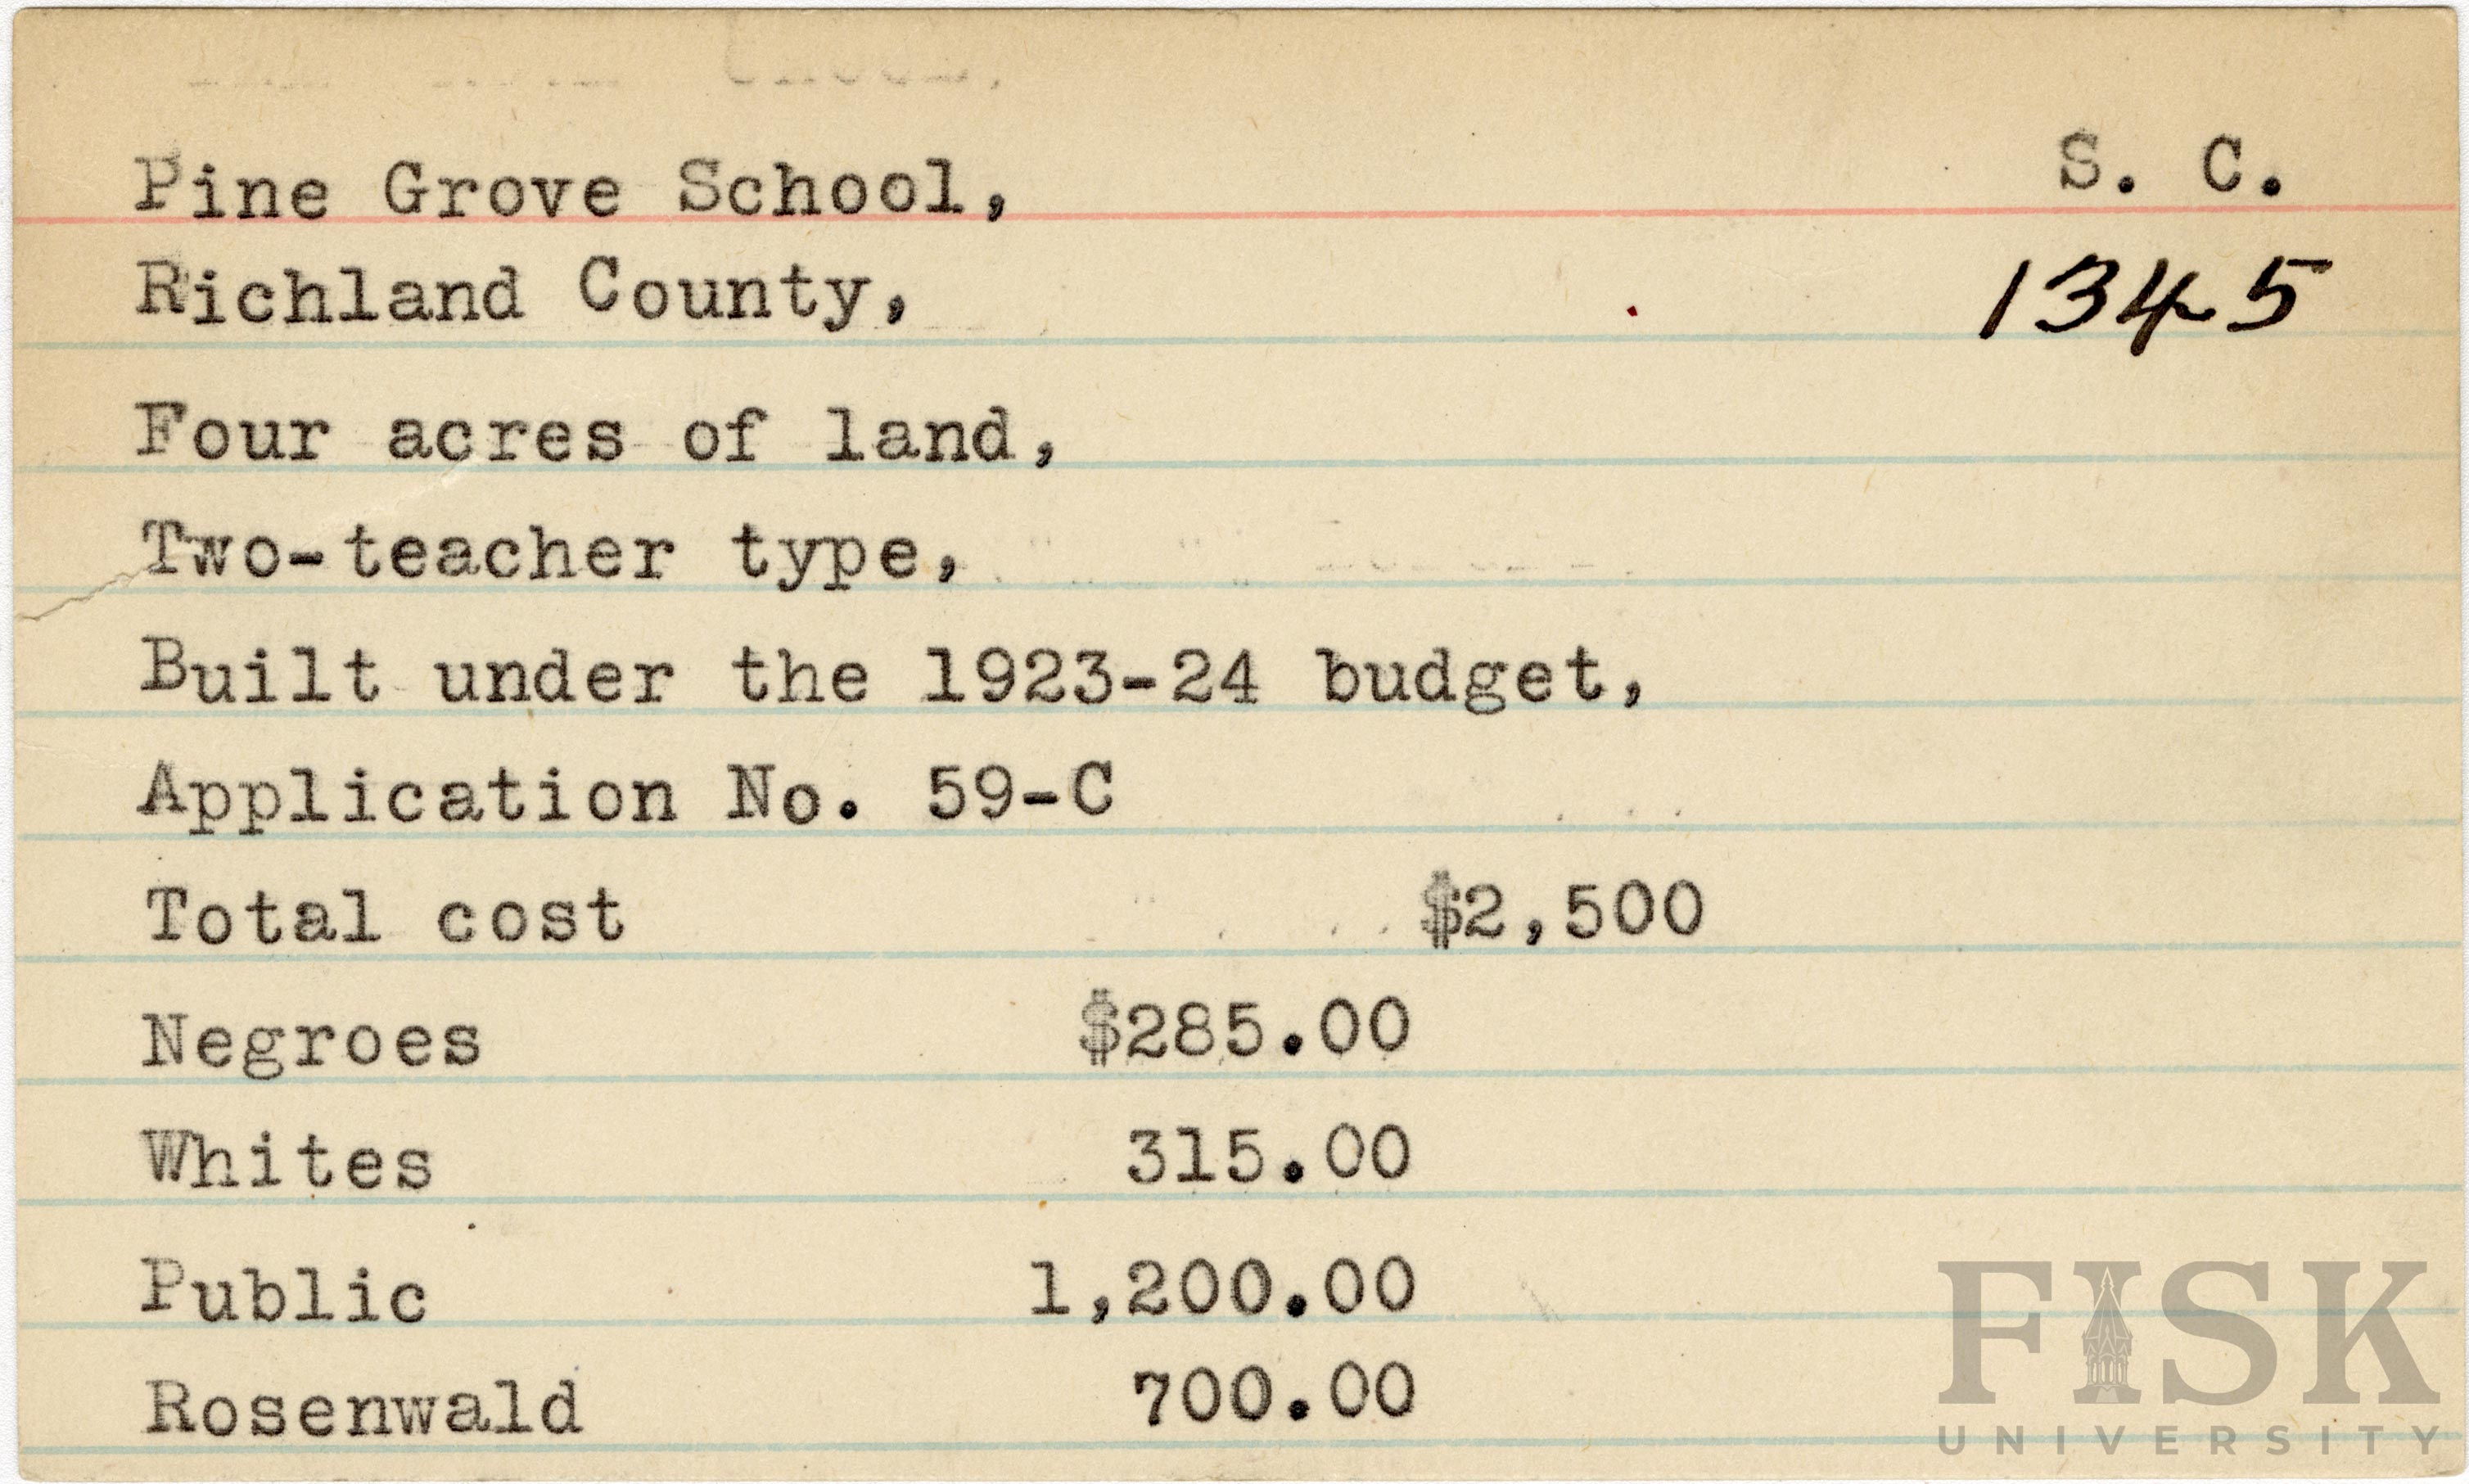 Pine Grove School, S. C.
Richland County, 1345
Four acres of land,
Two-teacher type,
Built under the 1923-24 budget,
Application No. 59-C
Total cost $2,500
Negroes $285.00
Whites 315.00
Public 1,200.00
Rosenwald 700.00
FISK
UNIVERSITY